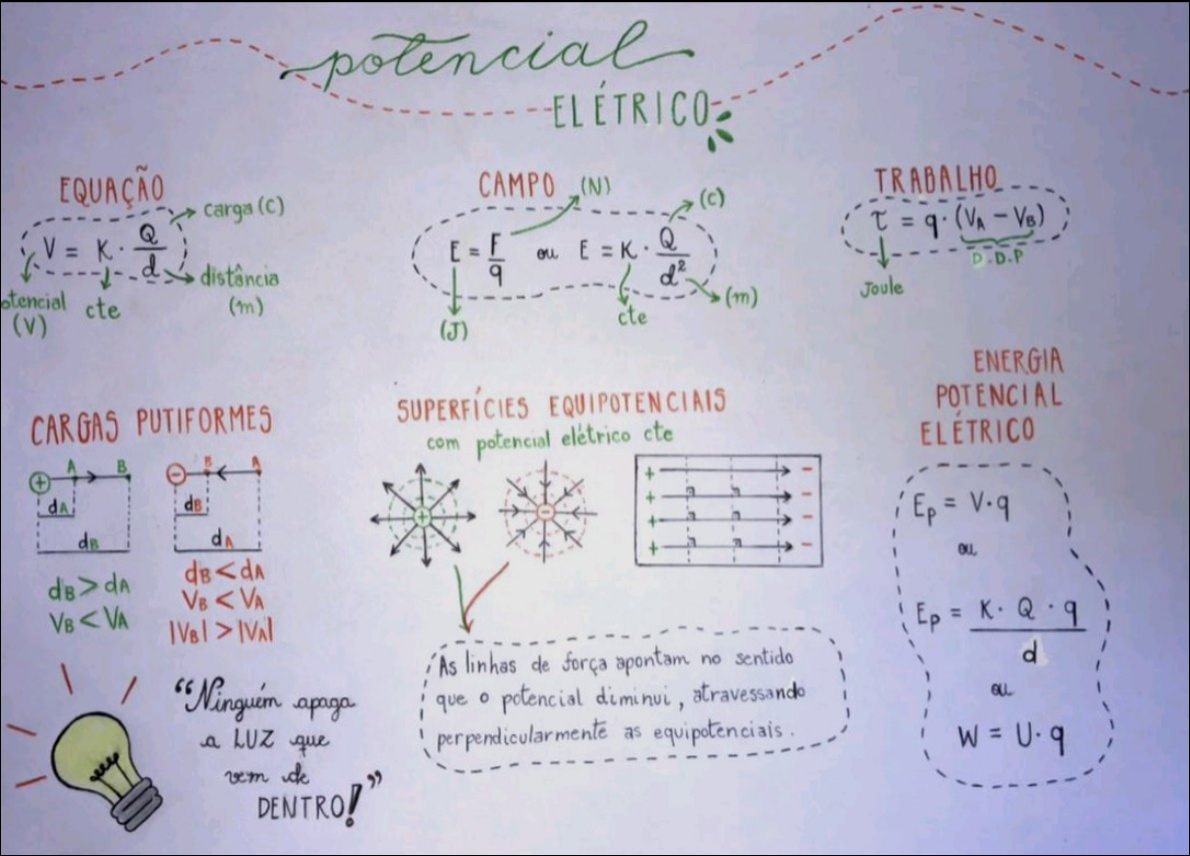 potencial
ELÉTRICO
EQUAÇÃO
V = K · Q/d
carga (C)
distância
(m)
otencial
(V)
cte
CAMPO
(N)
(C)
E = F/q ou E = K · Q/d²
(J)
cte
(m)
TRABALHO
τ = q · (VA − VB)
D.D.P
Joule
CARGAS PUTIFORMES
+ A B
dA
dB
dB > dA
VB < VA
− B A
dB
dA
dB < dA
VB < VA
|VB| > |VA|
SUPERFÍCIES EQUIPOTENCIAIS
com potencial elétrico cte
+
−
+ −
+ −
+ −
+ −
As linhas de força apontam no sentido
que o potencial diminui, atravessando
perpendicularmente as equipotenciais.
ENERGIA
POTENCIAL
ELÉTRICO
Ep = V·q
ou
Ep = K · Q · q / d
ou
W = U · q
"Ninguém apaga
a LUZ que
vem de
DENTRO!"